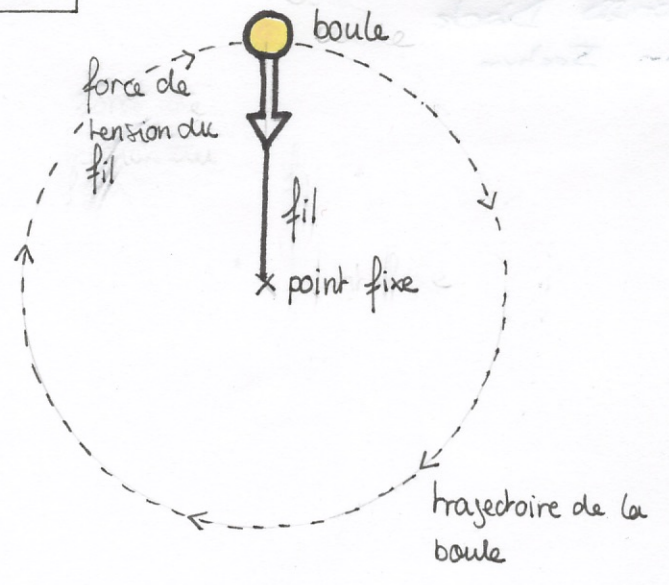 boule
force de
tension du
fil
fil
point fixe
trajectoire de la
boule